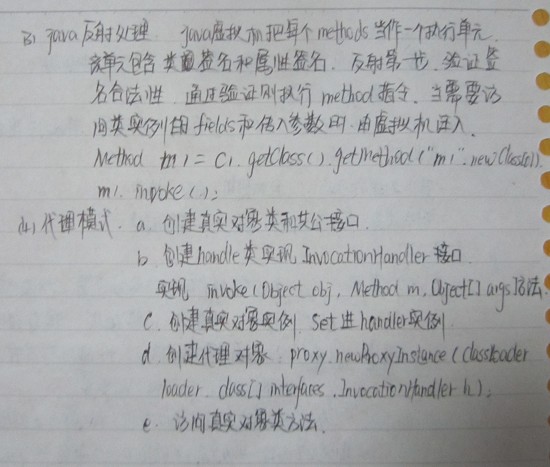 (3) java反射处理 java虚拟机把每个methods当作一个执行单元.
该单元包含类型签名和属性签名. 反射第一步. 验证签
名合法性. 通过验证则执行method指令. 当需要访
问类实例的fields和传入参数时.由虚拟机压入.
Method m1 = C1.getClass().getMethod("m1".new Class[0]).
m1. invoke();
(4) 代理模式. a. 创建真实对象类和共公接口.
b. 创建handle类实现 InvocationHandler 接口.
实现 invoke(Object obj, Method m, Object[] args)方法.
c. 创建真实对象实例. Set进handler实例.
d. 创建代理对象. proxy.newProxyInstance(Classloader
loader. class[] interfaces. InvocationHandler h);
e. 访问真实对象类方法.